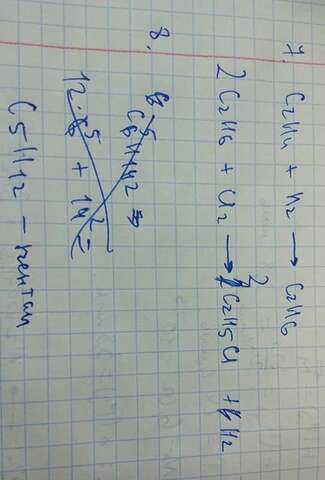 7. C2H4 + H2 → C2H6
2C2H6 + Cl2 → 2C2H5Cl + H2
8.
C5H12 - пентан